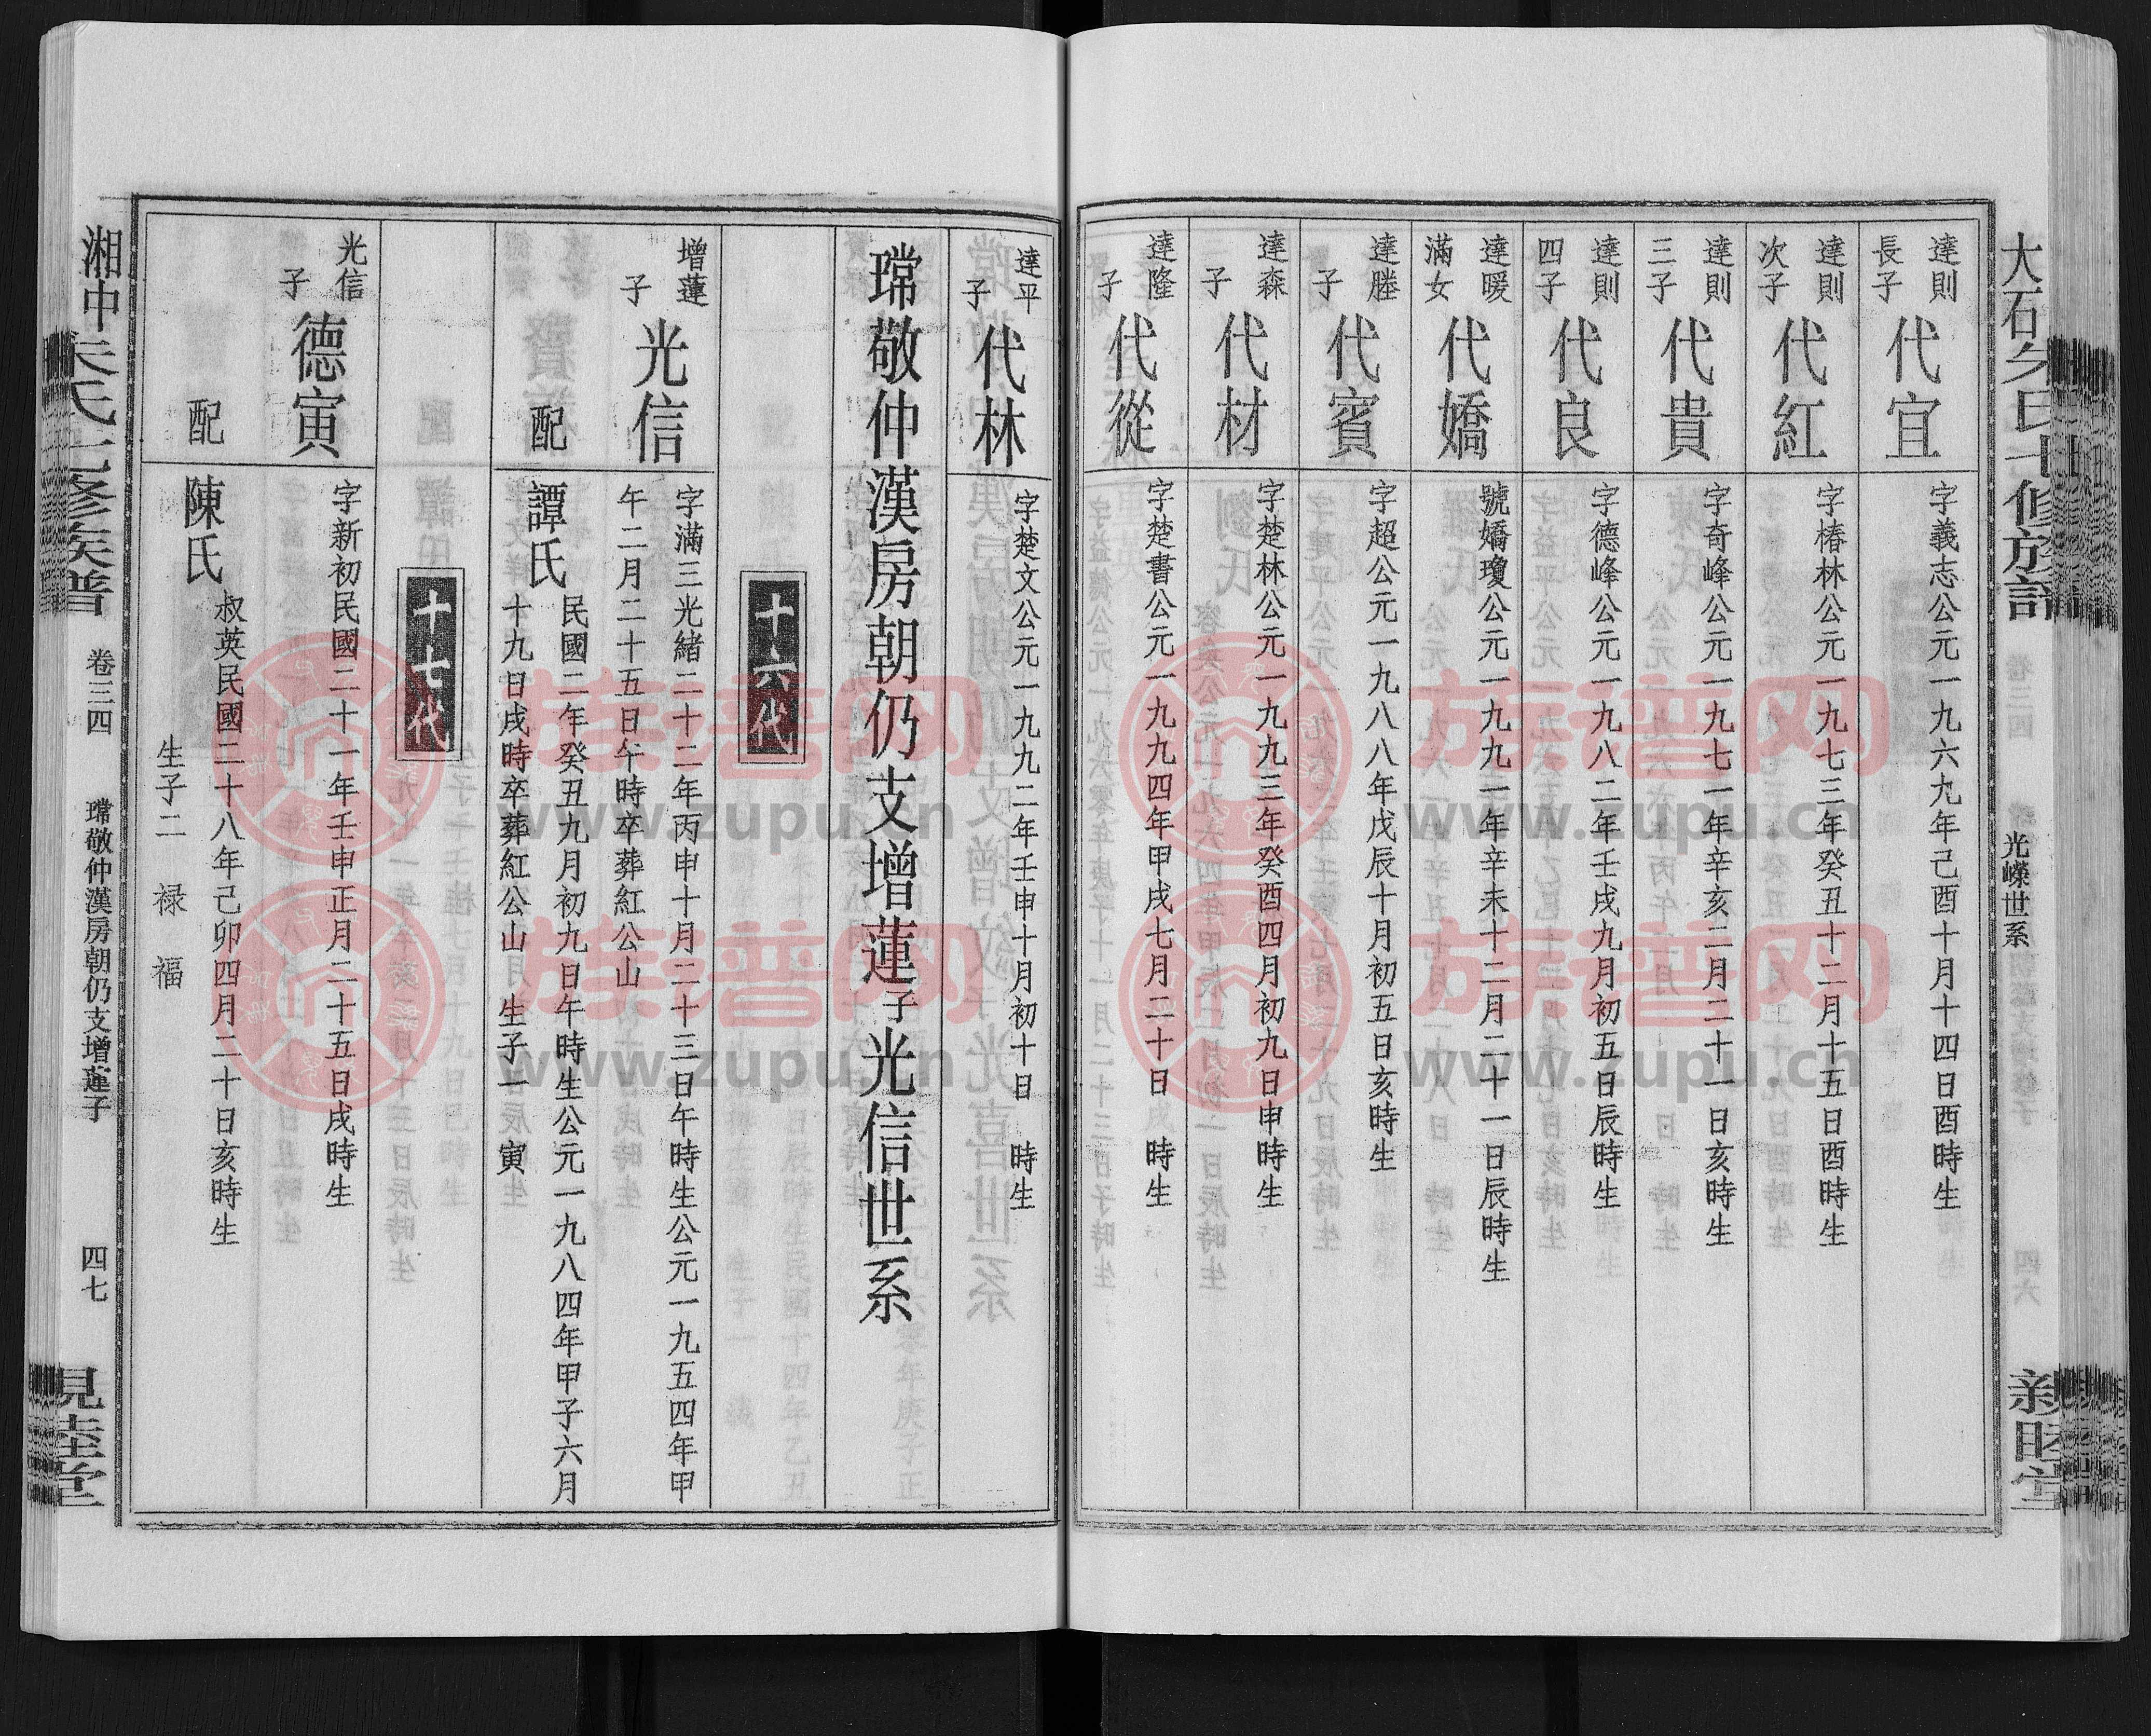 大石朱氏七修族譜
光嶸世系
親睦堂
達則長子
代宜
字義志公元一九六九年己酉十月十四日酉時生
達則次子
代紅
字椿林公元一九七三年癸丑十二月十五日酉時生
達則三子
代貴
字奇峰公元一九七一年辛亥二月二十一日亥時生
達則四子
代良
字德峰公元一九八二年壬戌九月初五日辰時生
達暖滿女
代嬌
號嬌瓊公元一九九一年辛未十二月二十一日辰時生
達塍子
代賓
字超公元一九八八年戊辰十月初五日亥時生
達森子
代材
字楚林公元一九九三年癸酉四月初九日申時生
達隆子
代從
字楚書公元一九九四年甲戌七月二十日 時生
達平子
代林
字楚文公元一九九二年壬申十月初十日 時生
瑺敬仲漢房朝仍支增蓮子光信世系
十六代
增蓮子
光信
字滿三光緒二十二年丙申十月二十三日午時生公元一九五四年甲
午二月二十五日午時卒葬紅公山
配
譚氏
民國二年癸丑九月初九日午時生公元一九八四年甲子六月
十九日戌時卒葬紅公山 生子一 寅
十七代
光信子
德寅
字新初民國二十一年壬申正月二十五日戌時生
配
陳氏
叔英民國二十八年己卯四月二十日亥時生
生子二 禄 福
湘中朱氏七修族譜
卷三四
瑺敬仲漢房朝仍支增蓮子
四七
親睦堂
族譜网
www.zupu.cn
族譜网
www.zupu.cn
族譜网
www.zupu.cn
族譜网
www.zupu.cn